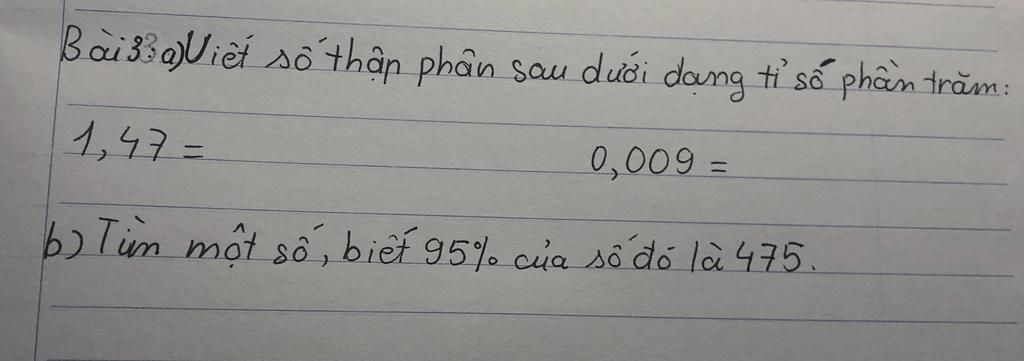 Bài 3: a) Viết số thập phân sau dưới dạng tỉ số phần trăm:
1,47 = 0,009 =
b) Tìm một số, biết 95% của số đó là 475.